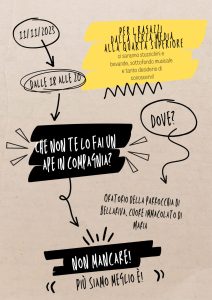 11/11/2023
PER I RAGAZZI
DALLA SECONDA MEDIA
ALLA QUARTA SUPERIORE
ci saranno stuzzichini e
bevande, sottofondo musicale
e tanto desiderio di
conoscersi!
DALLE 18 ALLE 20
DOVE?
CHE NON TE LO FAI UN
APE IN COMPAGNIA?
ORATORIO DELLA PARROCCHIA DI
BELLARIVA, CUORE IMMACOLATO DI
MARIA
NON MANCARE!
PIÙ SIAMO MEGLIO È!